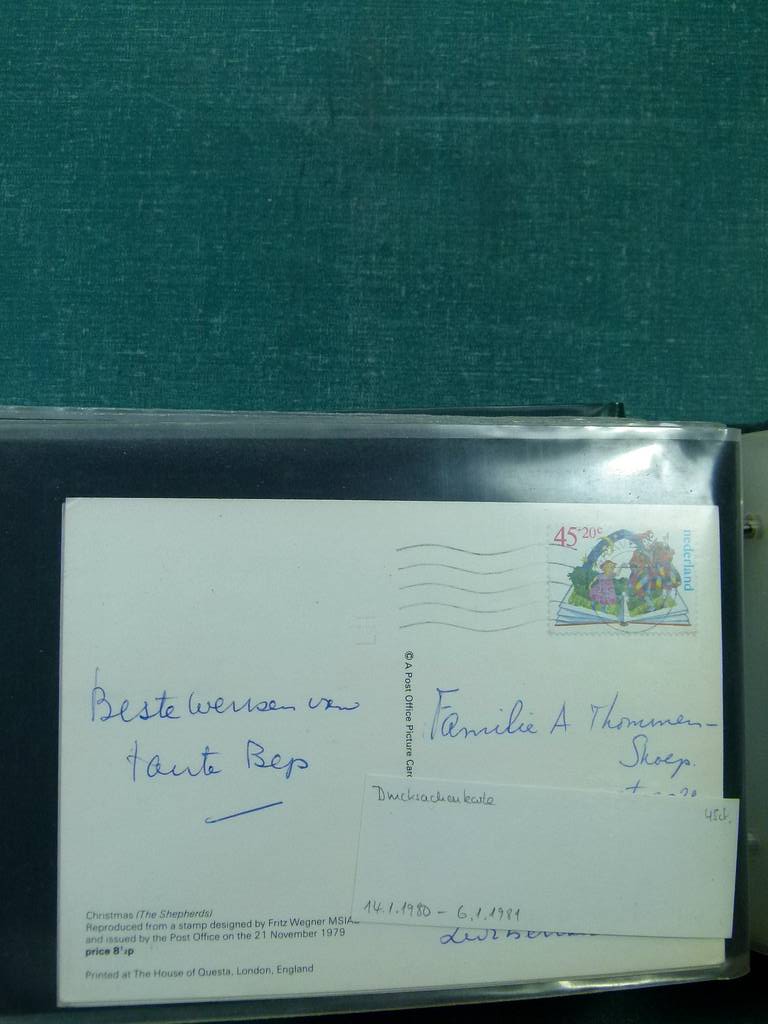 45+20c
nederland
© A Post Office Picture Card
Beste wensen van
tante Bep
Familie A Thommen-
Drucksachenkarte
45ct.
14.1.1980 - 6.1.1981
Christmas (The Shepherds)
Reproduced from a stamp designed by Fritz Wegner MSIA
and issued by the Post Office on the 21 November 1979
price 8½p
Printed at The House of Questa, London, England